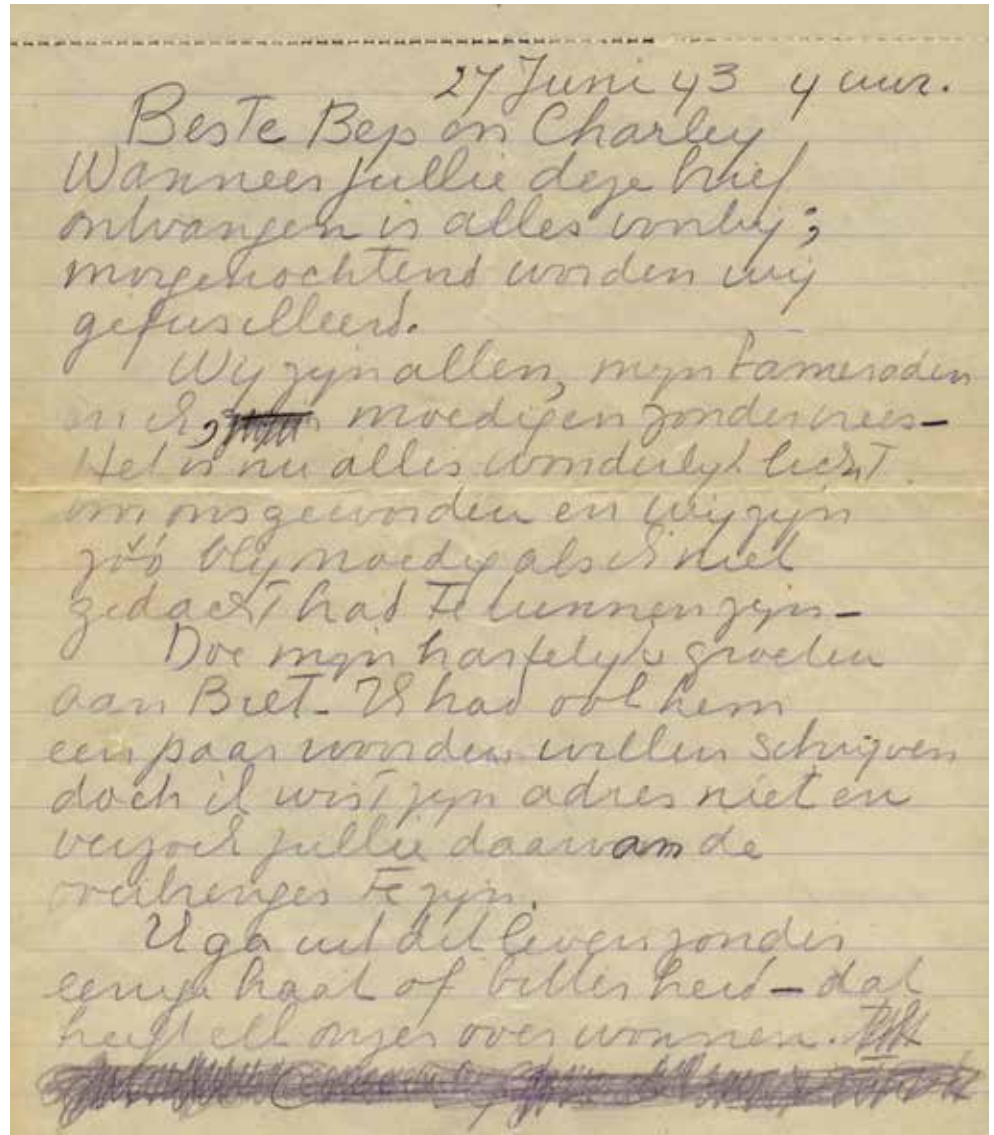 27 Juni 43 4 uur.
Beste Bep en Charley
Wanneer jullie deze brief
ontvangen is alles voorbij;
morgenochtend worden wij
gefusilleerd.
Wij zijn allen, mijn kameraden
en ik, moedig en zonder vrees–
Het is nu alles wonderlijk licht
om ons geworden en wij zijn
zóó blijmoedig als ik niet
gedacht had te kunnen zijn–
Doe mijn hartelijke groeten
aan Biet– Ik had ook hem
een paar woorden willen schrijven
doch ik wist zijn adres niet en
verzoek jullie daarvan de
overbrengers te zijn.
Ik ga uit dit leven zonder
eenige haat of bitterheid – dat
heeft elk onzer overwonnen.